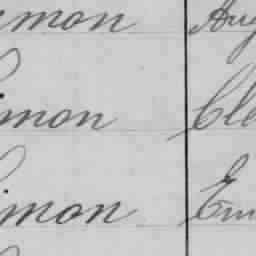 imon Aug
imon Cle
imon Em